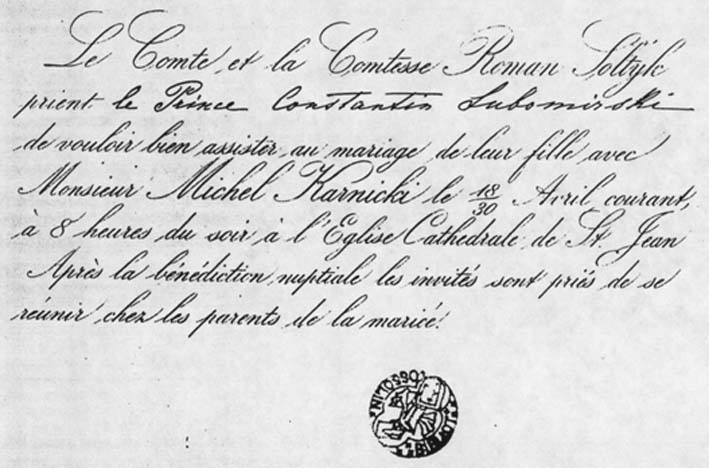 Le Comte et la Comtesse Roman Sołtyk
prient le Prince Constantin Lubomirski
de vouloir bien assister au mariage de leur fille avec
Monsieur Michel Karnicki le 18/30 Avril courant,
à 8 heures du soir à l'Eglise Cathedrale de St. Jean
Après la bénédiction nuptiale les invités sont priés de se
réunir chez les parents de la mariée.